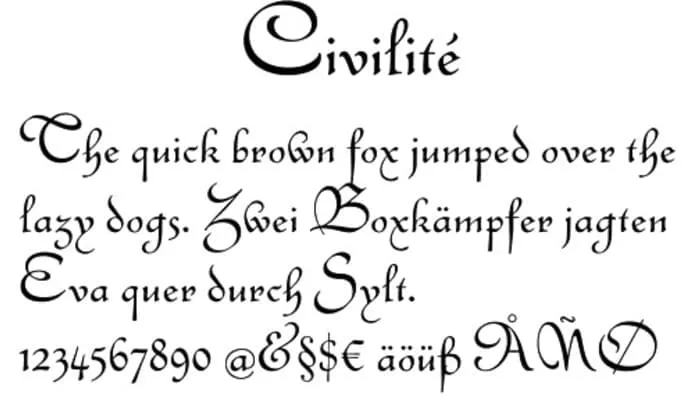 Civilité
The quick brown fox jumped over the
lazy dogs. Zwei Boxkämpfer jagten
Eva quer durch Sylt.
1234567890 @&§$€ äöüß ÅÑØ